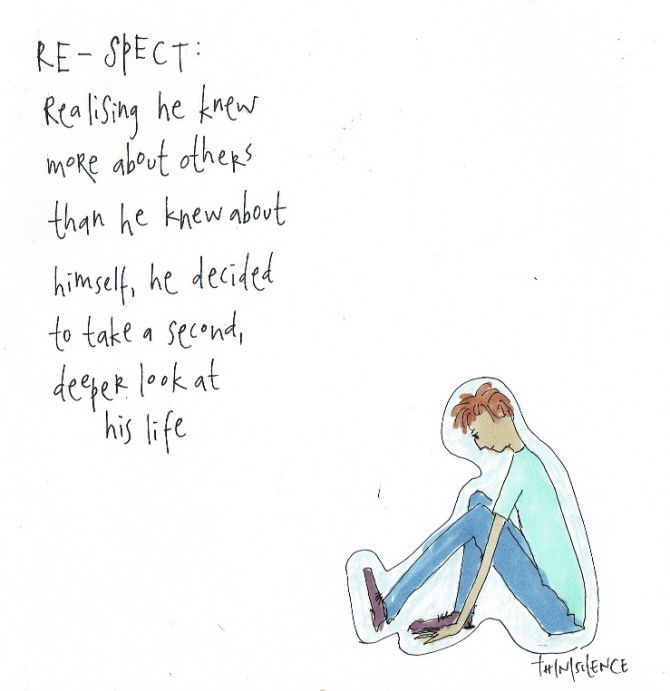 RE-SPECT:
Realising he knew
more about others
than he knew about
himself, he decided
to take a second,
deeper look at
his life
THIN|SILENCE